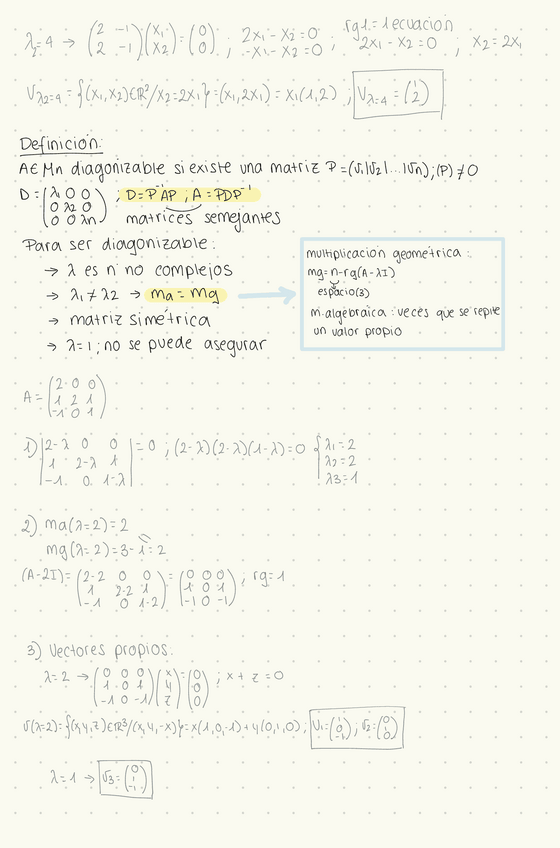 λ₂=4 → (2 -1; 2 -1)(x₁; x₂)=(0; 0) ; 2x₁-x₂=0 -x₁-x₂=0 ; rg1=1ecuación 2x₁-x₂=0 , x₂=2x₁
Vλ₂=4 = {(x₁,x₂)∈ℝ²/x₂=2x₁}=(x₁,2x₁)=x₁(1,2) ; Vλ=4 = (1; 2)
Definición:
A∈Mn diagonizable si existe una matriz P=(v₁|v₂|...|vn);(P)≠0
D=(λ₁ 0 0; 0 λ₂ 0; 0 0 λn) ; D=P⁻¹AP ; A=PDP⁻¹
matrices semejantes
Para ser diagonizable:
→ λ es nº no complejos
→ λ₁≠λ₂ → ma=mg
→ matriz simétrica
→ λ=1 ; no se puede asegurar
multiplicación geométrica:
mg=n-rg(A-λI)
espacio(3)
m.algebraica: veces que se repite
un valor propio
A=(2 0 0; 1 2 1; -1 0 1)
1) |2-λ 0 0; 1 2-λ 1; -1 0 1-λ| =0 ; (2-λ)(2-λ)(1-λ)=0 { λ₁=2 λ₂=2 λ₃=1
2) ma(λ=2)=2
mg(λ=2)=3-1=2
(A-2I)=(2-2 0 0; 1 2-2 1; -1 0 1-2)=(0 0 0; 1 0 1; -1 0 -1) ; rg=1
3) Vectores propios:
λ=2 →(0 0 0; 1 0 1; -1 0 -1)(x; y; z)=(0; 0; 0) ; x+z=0
V(λ=2)={(x,y,z)∈ℝ³/(x,y,-x)}=x(1,0,-1)+y(0,1,0) ; V₁=(1; 0; -1) ; V₂=(0; 0; 0)
λ=1 → V₃=(0; 1; -1)